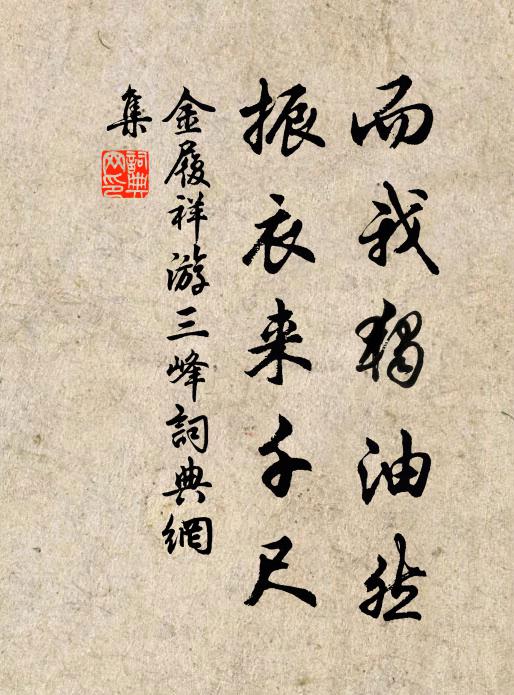 而我獨油然
振衣来千尺
金履祥游三峰詞典網
集
詞典網印